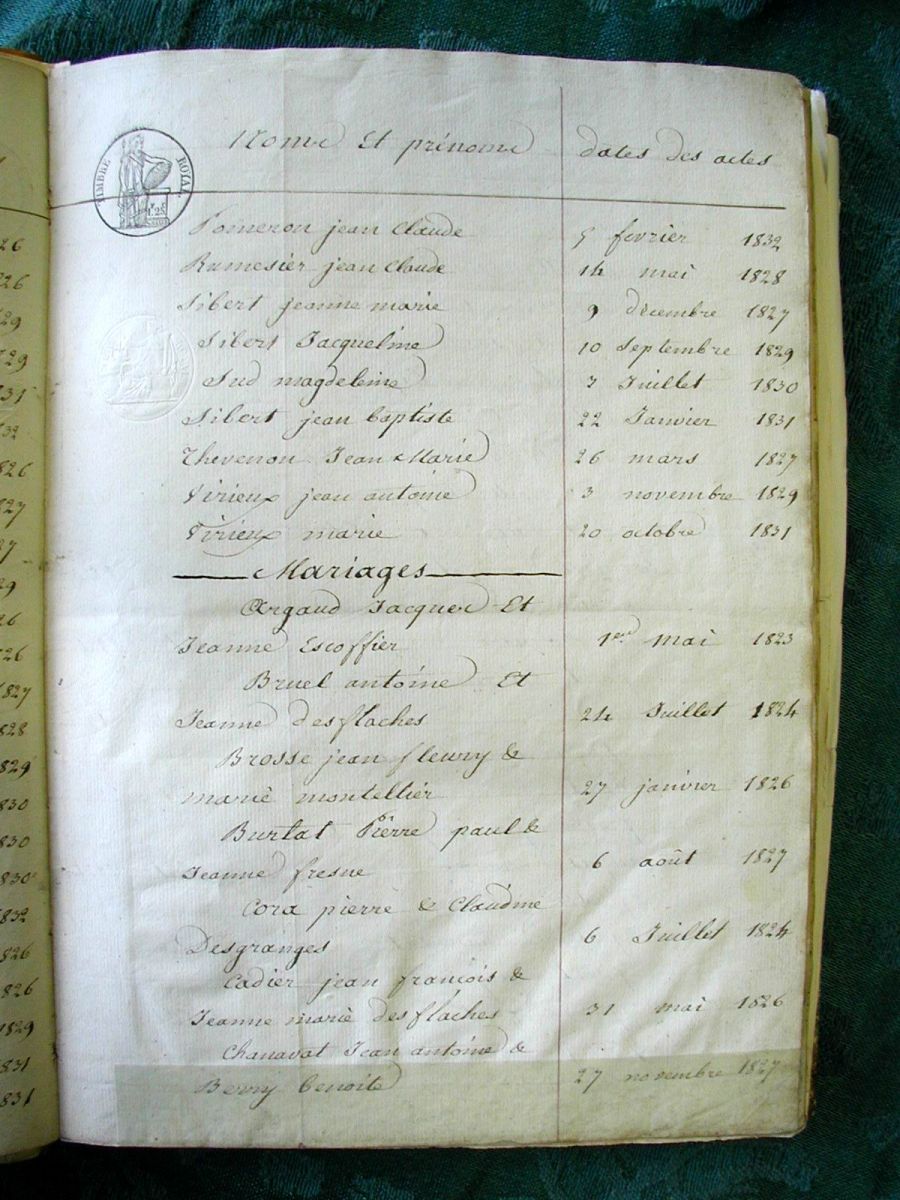 Noms Et prénoms dates des actes
TIMBRE ROYAL
1f.25
Pomeron jean Claude 5 fevrier 1832
Rumesier jean Claude 14 mai 1828
Sibert jeanne marie 9 décembre 1827
Sibert Jacqueline 10 Septembre 1829
Sud magdeleine 7 Juillet 1830
Sibert jean baptiste 22 Janvier 1831
Thevenon Jean Marie 26 mars 1827
Virieux jean antoine 3 novembre 1829
Virieux marie 20 octobre 1831
Mariages
Argaud Jacques Et
Jeanne Escoffier 1er mai 1823
Bruel antoine Et
Jeanne desflaches 24 Juillet 1824
Brosse jean fleury &
marie montellier 27 janvier 1826
Burlat Pierre paul &
Jeanne fresne 6 août 1827
Cora pierre & Claudine
Desgranges 6 Juillet 1824
Cadier jean francois &
Jeanne marie desflaches 31 mai 1826
Chanavat Jean antoine &
Berry benoite 27 novembre 1827
26
26
29
29
31
32
826
827
27
29
26
26
1827
828
829
830
830
830
832
826
826
1829
1831
1831